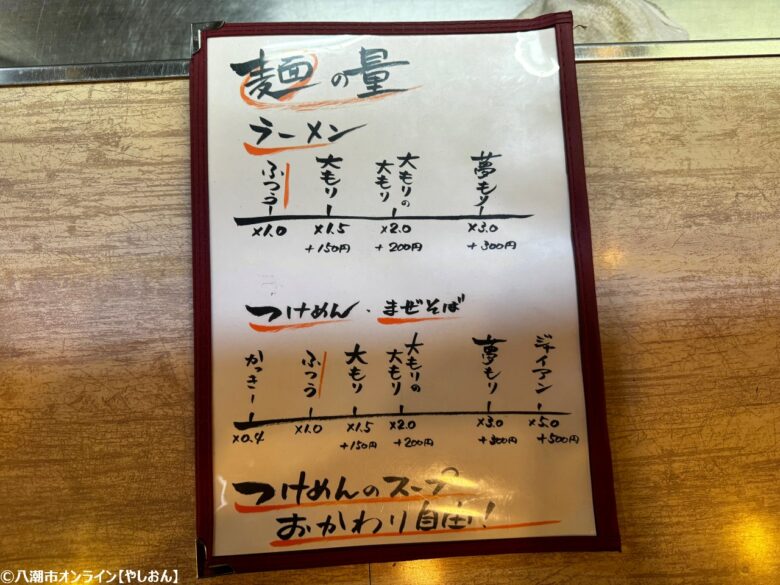 麺の量
ラーメン
ふつう 大もり 大もりの大もり 夢もり
×1.0 ×1.5 ×2.0 ×3.0
+150円 +200円 +300円
つけめん・まぜそば
かっきー ふつう 大もり 大もりの大もり 夢もり ジャイアン
×0.4 ×1.0 ×1.5 ×2.0 ×3.0 ×5.0
+150円 +200円 +300円 +500円
つけめんのスープ
おかわり自由!
©八潮市オンライン【やしおん】